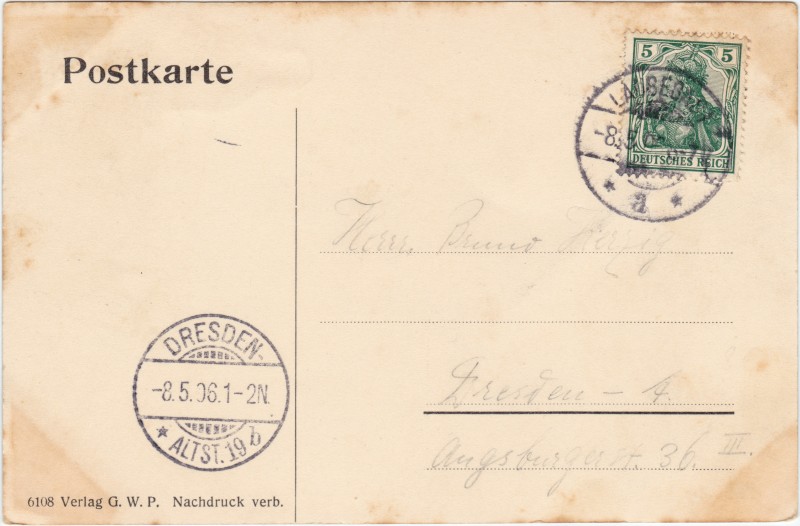 Postkarte
5 5
DEUTSCHES REICH
a
Herrn Bruno Herzig
Dresden – A.
Augsburgerstr. 36. III.
DRESDEN-
-8.5.06.1-2N.
ALTST. 19 b
6108 Verlag G. W. P. Nachdruck verb.